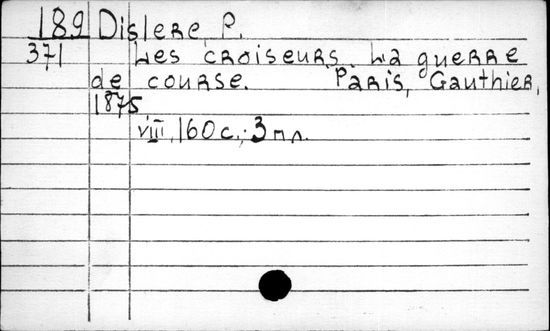 189 Dislere P.
371 Les croiseurs. La guerre
de course. Paris, Gauthier,
1875
VIII, 160 c.; 3 пл.